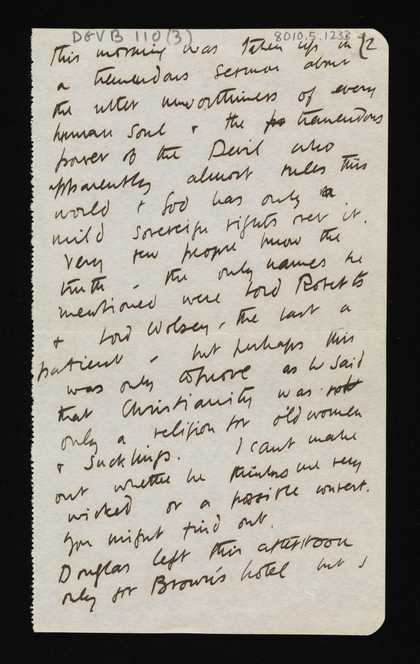 D&VB 110 (3)
8010.5.1233
2
This morning was taken up in
a tremendous sermon about
the utter unworthiness of every
human soul & the tremendous
power of the Devil who
apparently almost rules this
world & God has only a
mild sovereign rights over it.
Very few people know the
truth - the only names he
mentioned were Lord Roberts
& Lord Wolsey, the last a
patient - but perhaps this
was only to prove as he said
that Christianity was not
only a religion for old women
& Sucklings. I cant make
out whether he thinks me very
wicked or a possible convert.
You might find out.
Douglas left this afternoon
only for Brown's hotel but I